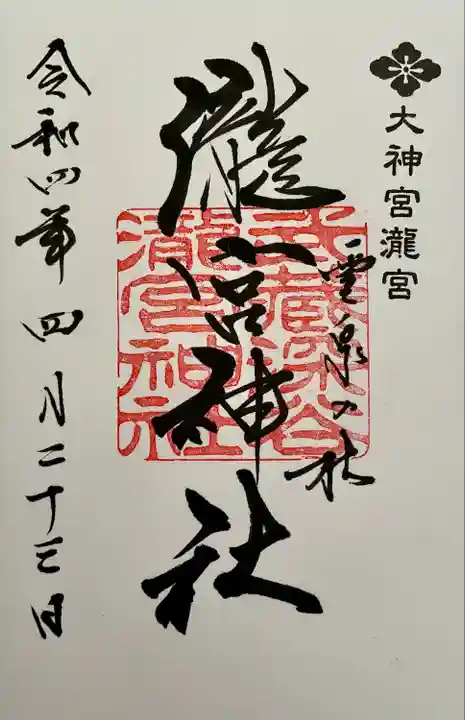 大神宮瀧宮
霊泉の社
瀧宮神社
武蔵深谷
瀧宮神社
令和四年四月二十三日